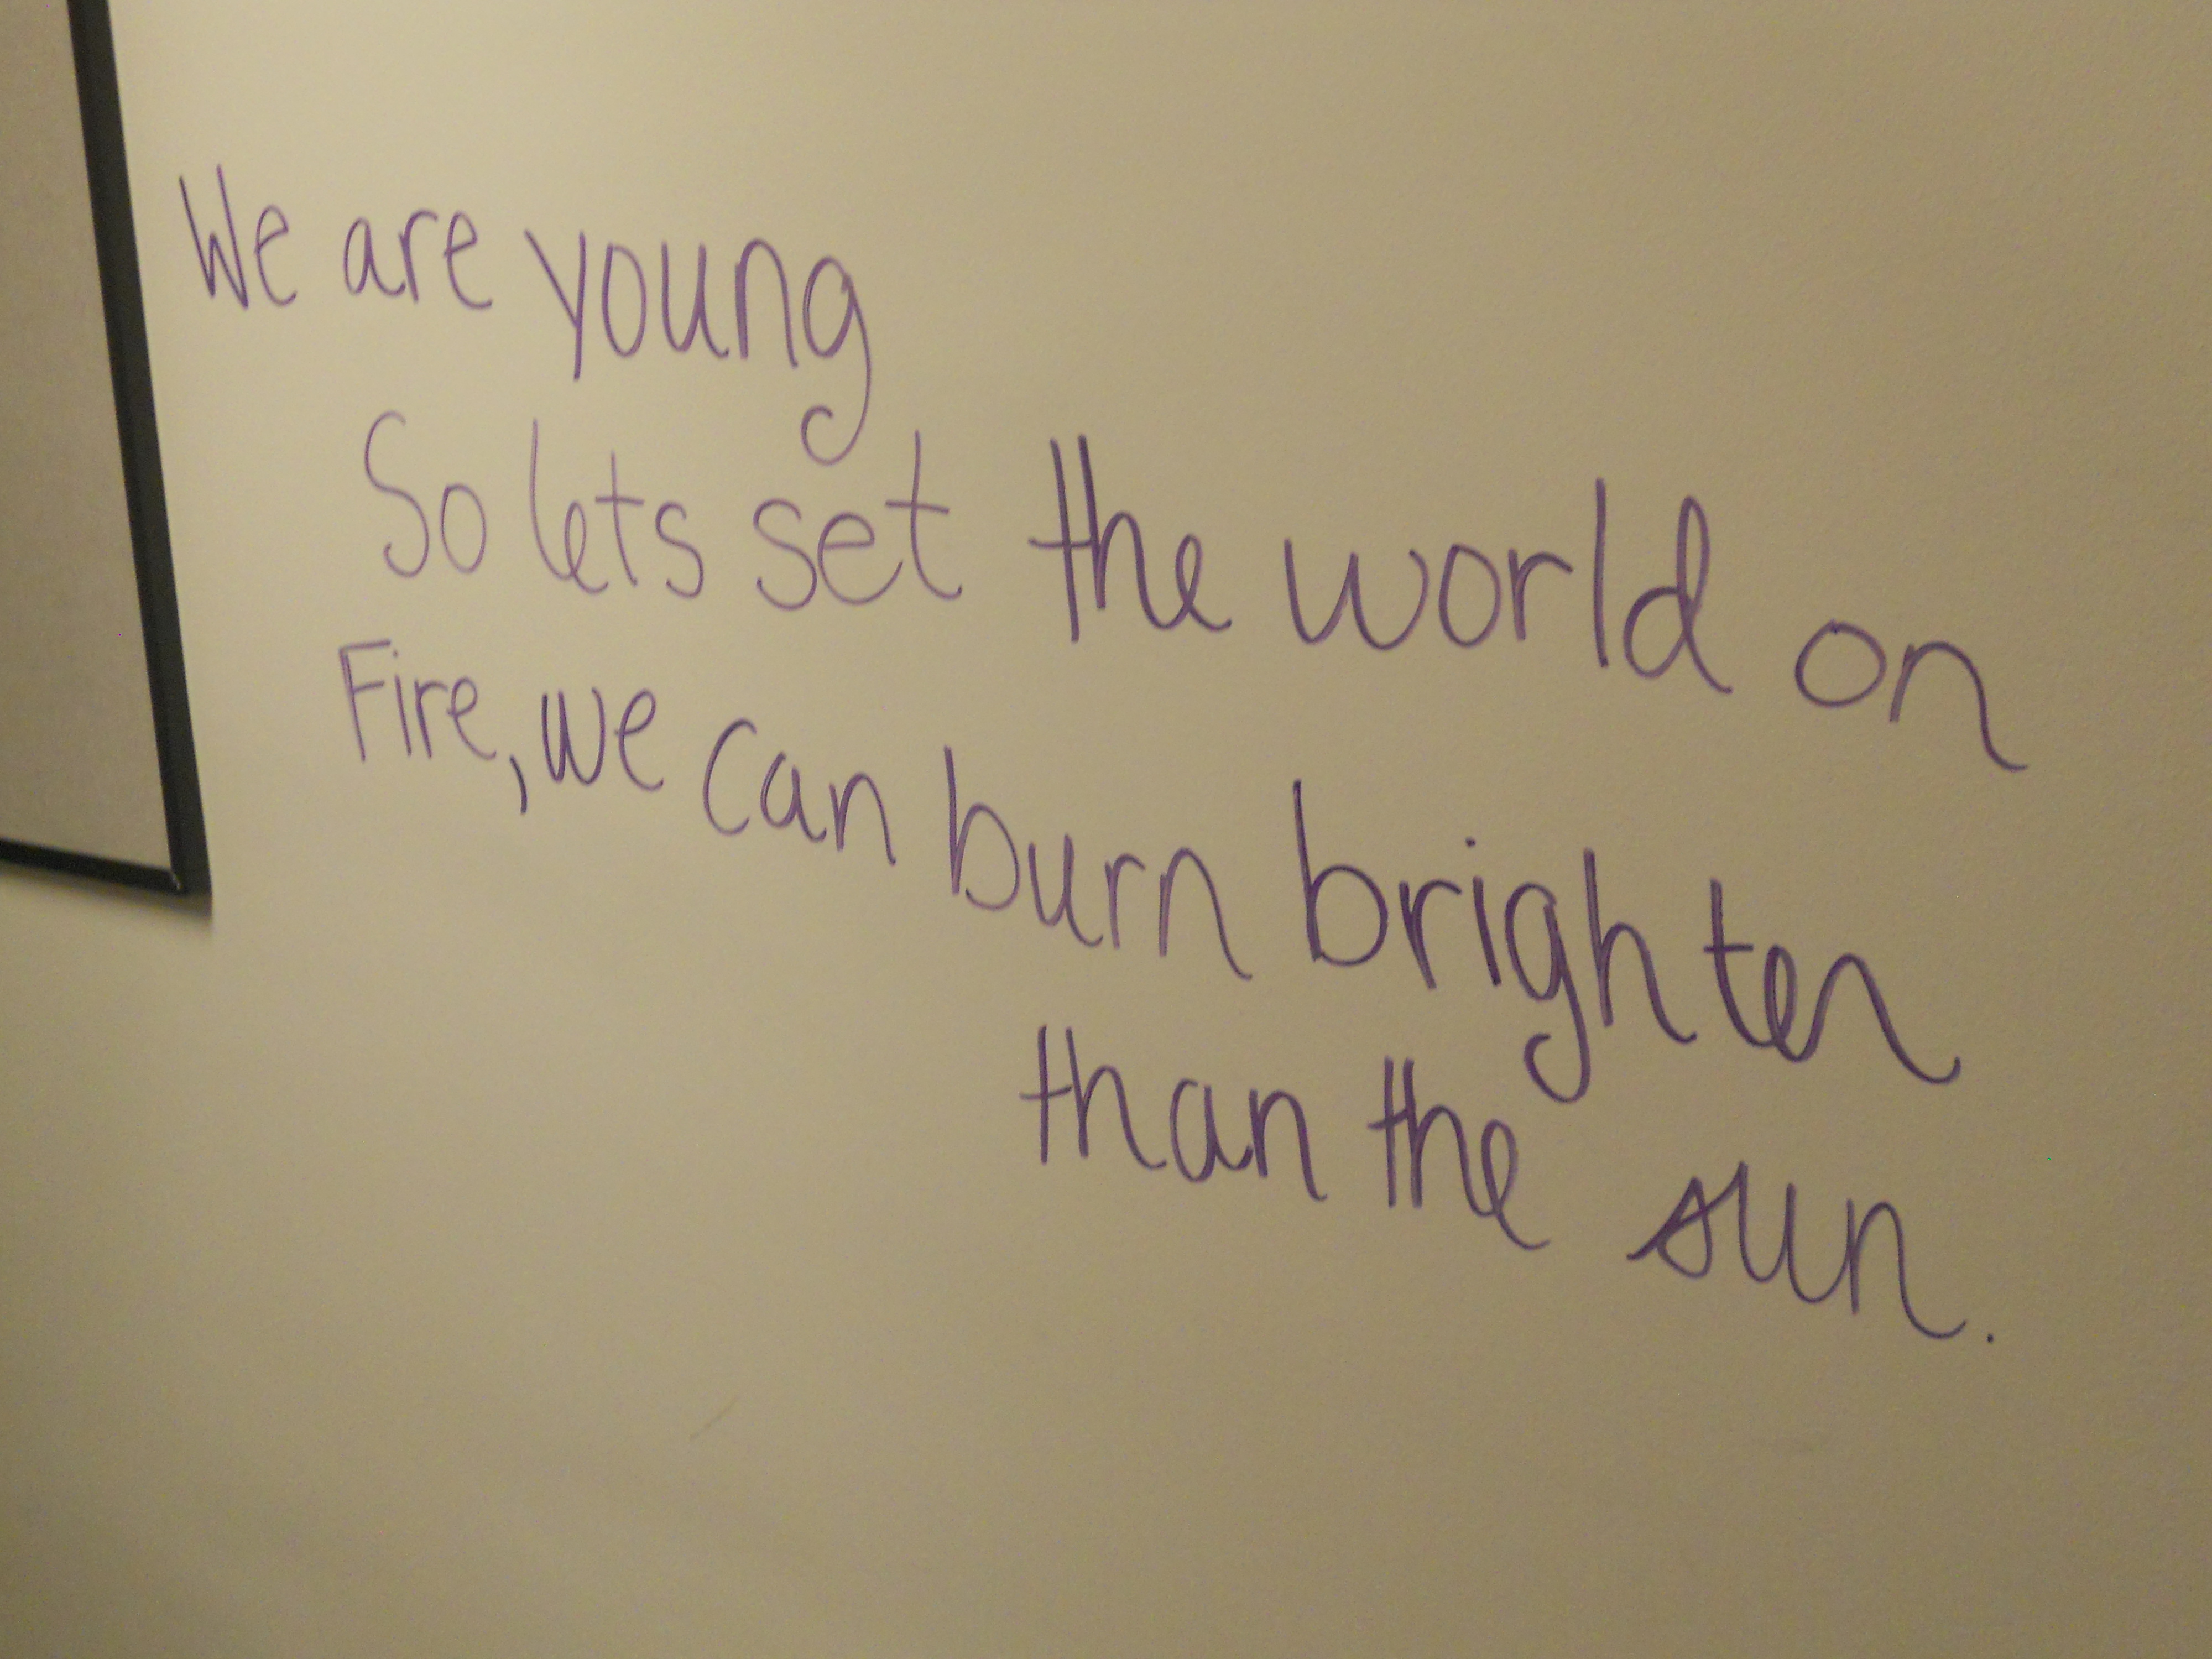 We are young
So lets set the world on
Fire, we can burn brighter
than the sun.